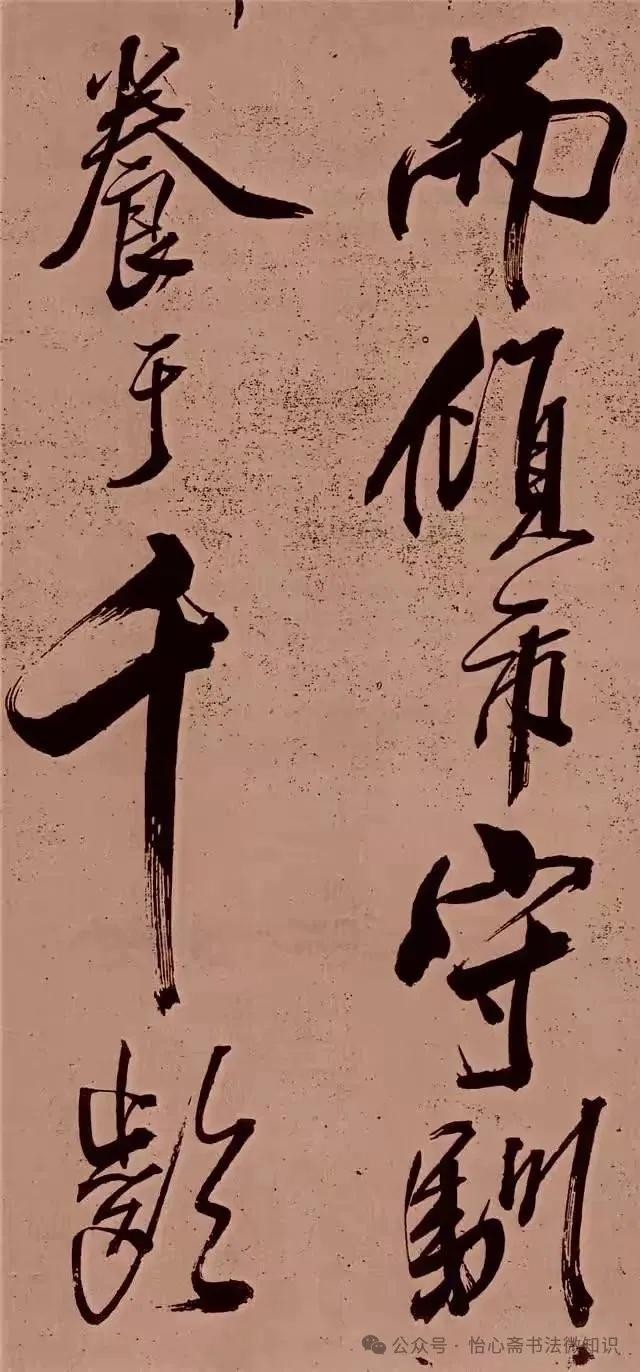 而傾市守馴
養于千齡
公众号 · 怡心斋书法微知识